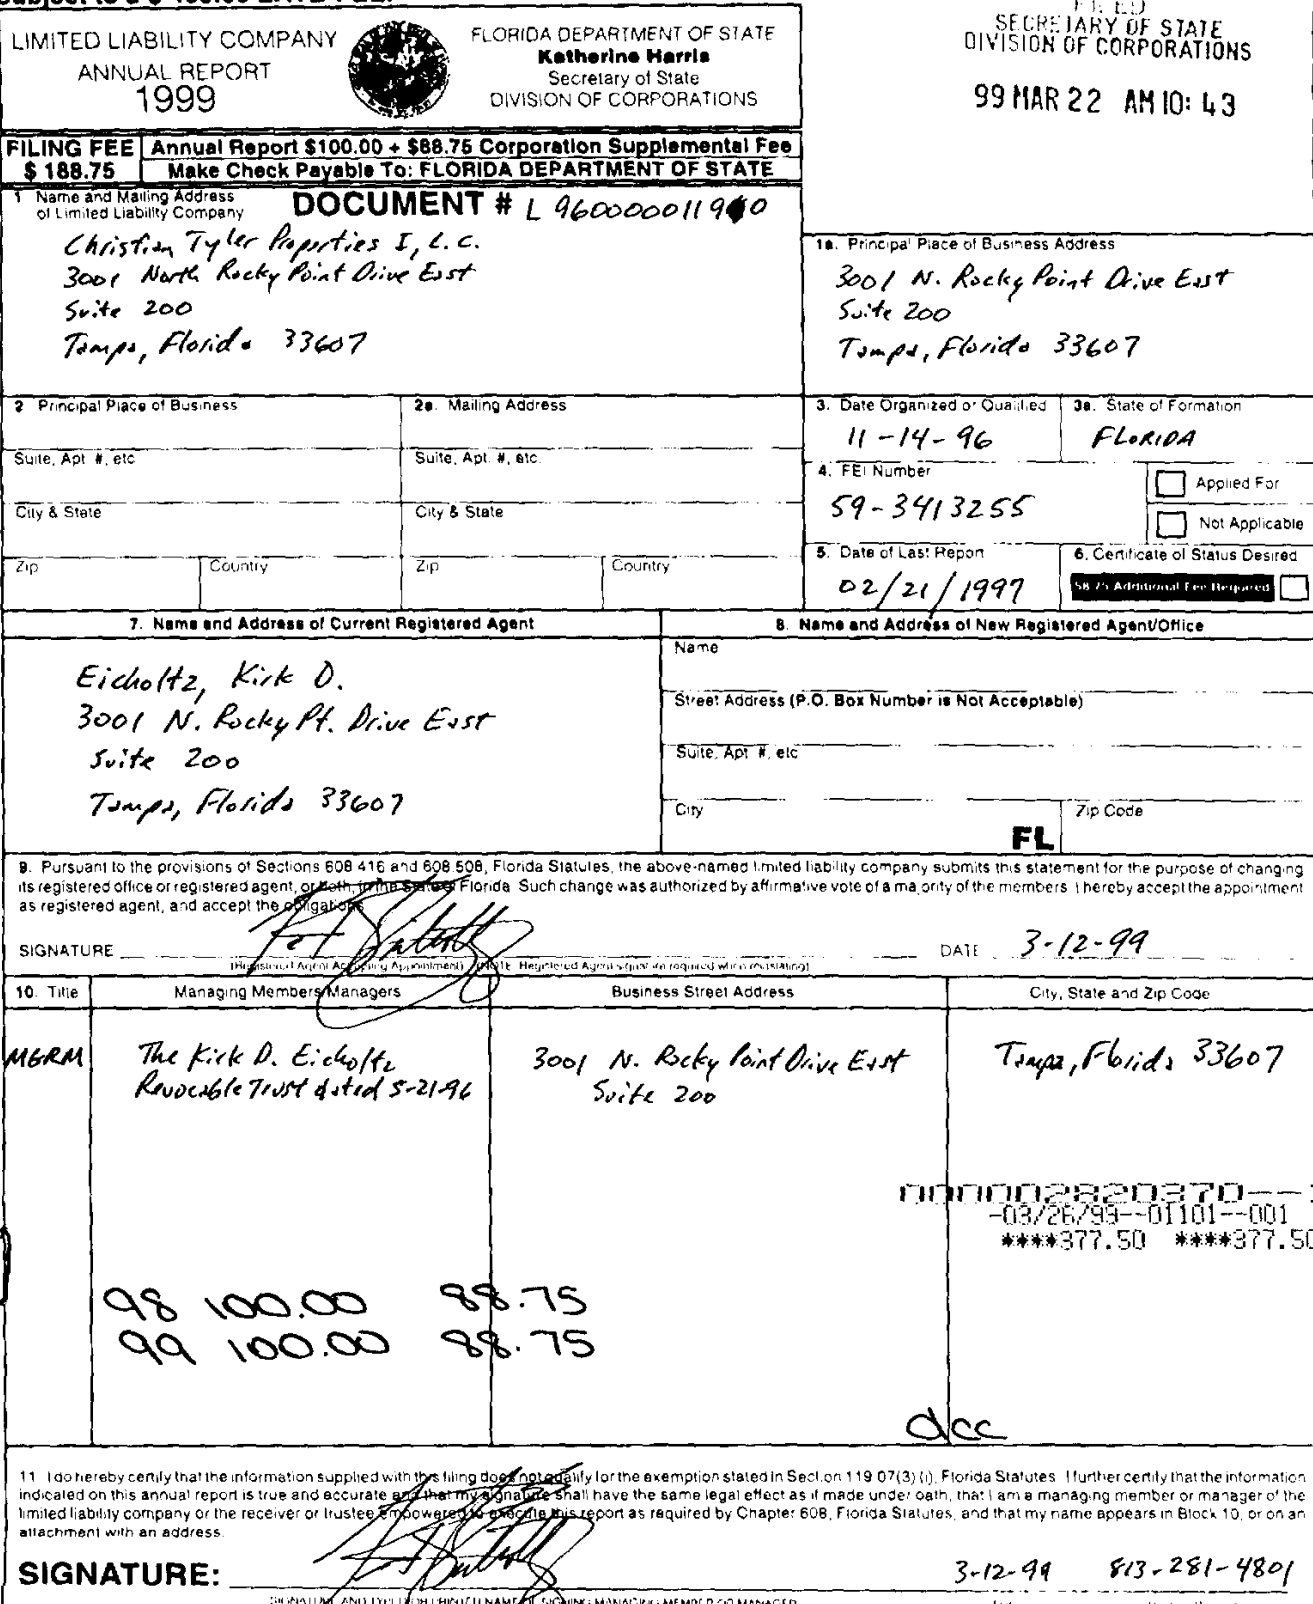 LIMITED LIABILITY COMPANY
ANNUAL REPORT
1999
FLORIDA DEPARTMENT OF STATE
Katherine Harris
Secretary of State
DIVISION OF CORPORATIONS
SECRETARY OF STATE
DIVISION OF CORPORATIONS
99 MAR 22 AM 10: 43
FILING FEE
$ 188.75
Annual Report $100.00 + $88.75 Corporation Supplemental Fee
Make Check Payable To: FLORIDA DEPARTMENT OF STATE
1 Name and Mailing Address
of Limited Liability Company
DOCUMENT # L 96000001190
Christian Tyler Properties I, L.C.
3001 North Rocky Point Drive East
Suite 200
Tampa, Florida 33607
1a. Principal Place of Business Address
3001 N. Rocky Point Drive East
Suite 200
Tampa, Florida 33607
2 Principal Place of Business
2a. Mailing Address
Suite, Apt #, etc
Suite, Apt. #, etc.
City & State
City & State
Zip
Country
Zip
Country
3. Date Organized or Qualified
11-14-96
3a. State of Formation
FLORIDA
4. FEI Number
59-3413255
Applied For
Not Applicable
5. Date of Last Report
02/21/1997
6. Certificate of Status Desired
$8.75 Additional Fee Required
7. Name and Address of Current Registered Agent
Eicholtz, Kirk D.
3001 N. Rocky Pt. Drive East
Suite 200
Tampa, Florida 33607
8. Name and Address of New Registered Agent/Office
Name
Street Address (P.O. Box Number is Not Acceptable)
Suite, Apt #, etc
City
FL
Zip Code
9. Pursuant to the provisions of Sections 608.416 and 608.508, Florida Statutes, the above-named limited liability company submits this statement for the purpose of changing
its registered office or registered agent, or both, in the State of Florida. Such change was authorized by affirmative vote of a majority of the members. I hereby accept the appointment
as registered agent, and accept the obligations
SIGNATURE
DATE 3-12-99
(Registered Agent Accepting Appointment) (NOTE: Registered Agent signature required when reinstating)
10. Title
Managing Members/Managers
Business Street Address
City, State and Zip Code
MGRM
The Kirk D. Eicholtz
Revocable Trust dated 5-21-96
3001 N. Rocky Point Drive East
Suite 200
Tampa, Florida 33607
000002820370--
-03/26/99--01101--001
****377.50 ****377.50
98 100.00 88.75
99 100.00 88.75
dcc
11 I do hereby certify that the information supplied with this filing does not qualify for the exemption stated in Section 119.07(3)(i), Florida Statutes. I further certify that the information
indicated on this annual report is true and accurate and that my signature shall have the same legal effect as if made under oath, that I am a managing member or manager of the
limited liability company or the receiver or trustee empowered to execute this report as required by Chapter 608, Florida Statutes, and that my name appears in Block 10, or on an
attachment with an address.
SIGNATURE:
3-12-99 813-281-4801